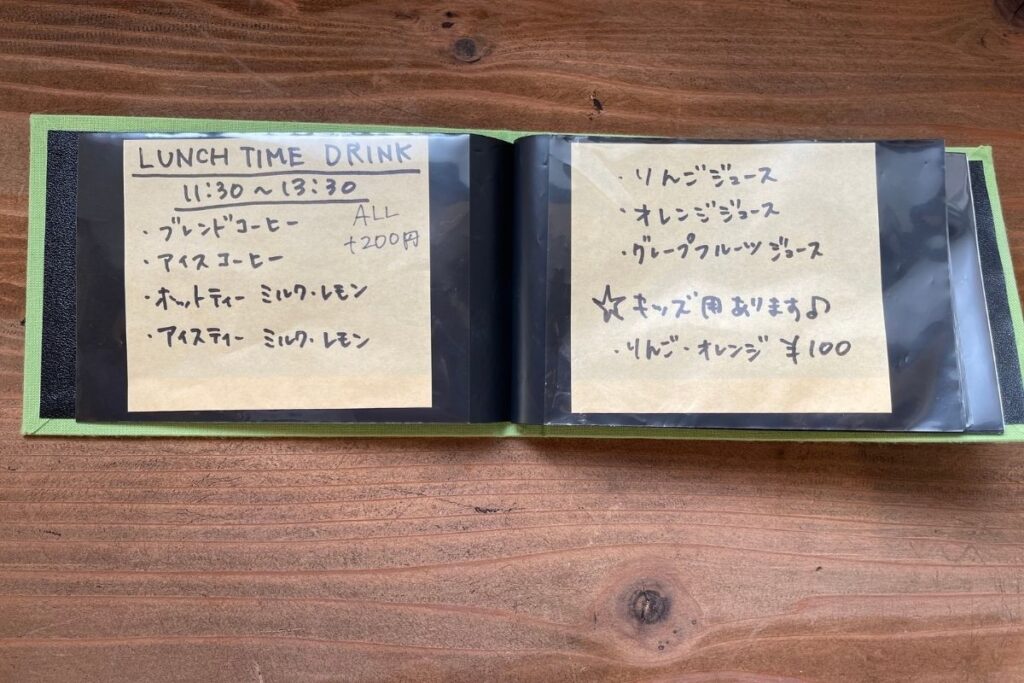 LUNCH TIME DRINK
11:30 〜 13:30
ALL
+200円
・ブレンドコーヒー
・アイスコーヒー
・ホットティー ミルク・レモン
・アイスティー ミルク・レモン
・りんごジュース
・オレンジジュース
・グレープフルーツジュース
☆キッズ用あります♪
・りんご・オレンジ ¥100